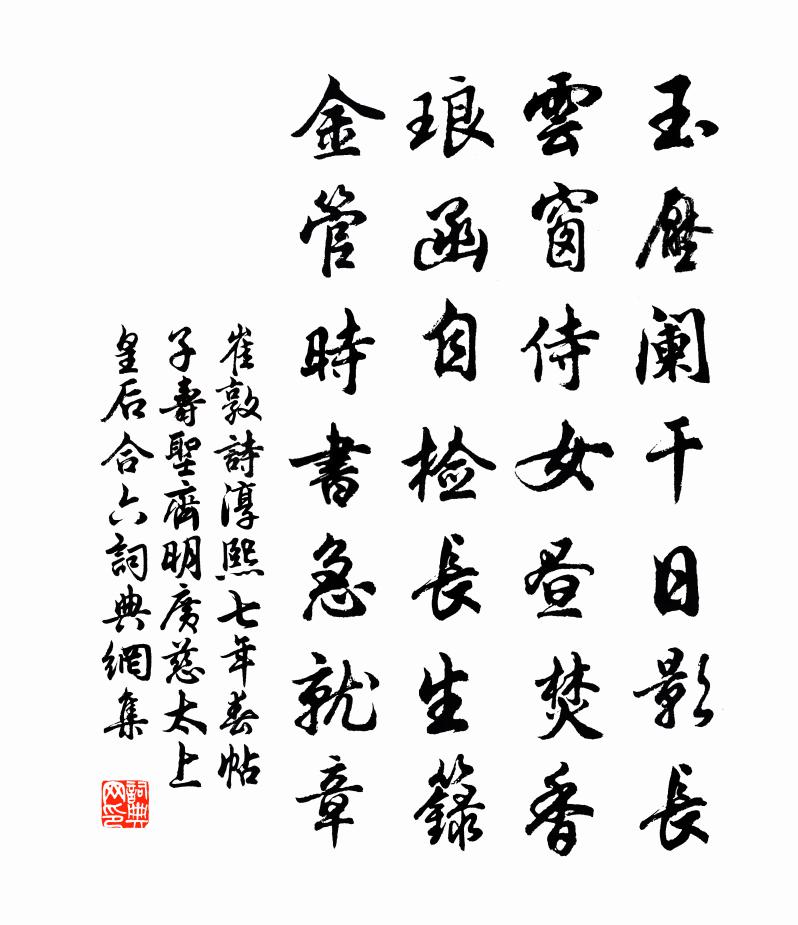 玉壓闌干日影長
雲窗侍女晝焚香
琅函自檢長生籙
金管時書急就章
崔敦詩淳熙七年春帖
子壽聖齊明廣慈太上
皇后合六詞典網集
詞典
网印